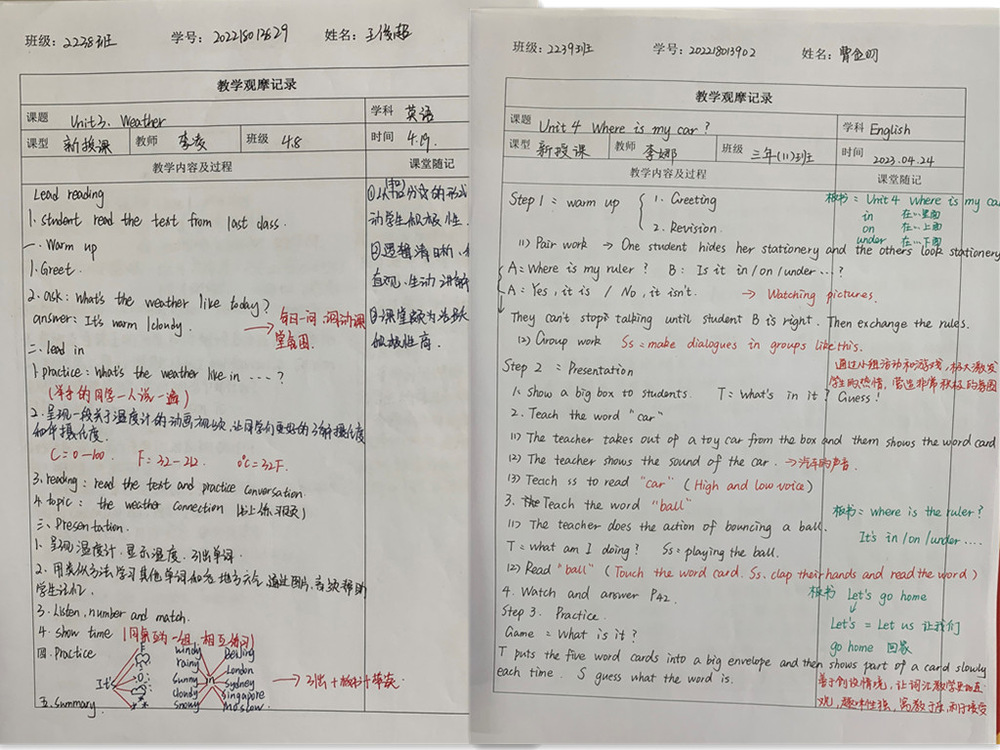 班级：2238班 学号：202218013629 姓名：王俊超
教学观摩记录
课题 Unit 3. Weather 学科 英语
课型 新授课 教师 李凌 班级 4.8 时间 4.19.
教学内容及过程 课堂随记
Lead reading
1. student read the text from last class.
一. Warm up
1. Greet.
2. ask: what's the weather like today?
answer: It's warm / cloudy.
→ 每日一问 调动课
堂氛围.
二. lead in
1. practice: what's the weather like in ···· ?
(举手的同学一人说一遍)
2. 呈现一段关于温度计的动画视频, 让同学们更好的了解摄氏度
和华摄氏度.
C = 0-100. F = 32-212. 0°C = 32F.
3. reading: read the text and practice conversation.
4. topic: the weather connection
三. Presentation.
1. 呈现温度计. 显示温度. 引出单词
2. 用类似方法学习其他单词和各地方天气, 通过图片, 帮助
学生记忆.
3. Listen, number and match.
4. show time (同桌为一组, 相互练习)
四. Practice
It's
windy
rainy
sunny
cloudy
snowy
in
Beijing
London
Sydney
Singapore
Moscow
五. Summary
①以 分的形式
动学生积极性.
②逻辑清晰,
直观, 生动 讲解
③课堂较为活跃
积极性高.
班级：2239班 学号：202218013902 姓名：曹金明
教学观摩记录
课题 Unit 4 Where is my car? 学科 English
课型 新授课 教师 李娜 班级 三年(11)班 时间 2023.04.24
教学内容及过程 课堂随记
Step 1: warm up { 1. Greeting
2. Revision.
(1) Pair work → One student hides her stationery and the others look stationery
A: Where is my ruler? B: Is it in / on / under ···?
A: Yes, it is / No, it isn't. → Watching pictures.
They can't stop talking until student B is right. Then exchange the rules.
(2) Group work Ss: make dialogues in groups like this.
Step 2: Presentation
1. Show a big box to students. T: what's in it? Guess!
2. Teach the word "car"
(1) The teacher takes out of a toy car from the box and them shows the word card
(2) The teacher shows the sound of the car. → 汽车的声音.
(3) Teach ss to read "car" (High and low voice)
3. Teach the word "ball"
(1) The teacher does the action of bouncing a ball.
T: What am I doing? Ss: playing the ball.
(2) Read "ball" (Touch the word card. Ss. clap their hands and read the word)
4. Watch and answer P42.
Step 3. Practice.
Game: What is it?
T puts the five word cards into a big envelope and then shows part of a card slowly
each time. S guess what the word is.
板书: Unit 4 Where is my ca
in 在...里面
on 在...上面
under 在...下面
通过小组活动和游戏, 极大激发
学生的热情, 营造非常积极的氛围
板书: where is the ruler?
It's in / on / under ····
板书 Let's go home
↓
Let's = Let us 让我们
go home 回家
善于创设情境, 让词汇教学更加直
观, 趣味性强, 寓教于乐, 利于接受